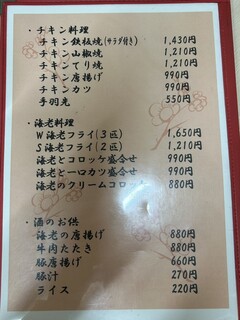 ・チキン料理
チキン鉄板焼(サラダ付き) 1,430円
チキン山椒焼 1,210円
チキンてり焼 1,210円
チキン唐揚げ 990円
チキンカツ 990円
手羽先 550円
・海老料理
W海老フライ(3匹) 1,650円
S海老フライ(2匹) 1,210円
海老とコロッケ盛合せ 990円
海老と一口カツ盛合せ 990円
海老のクリームコロッケ 880円
・酒のお供
海老の唐揚げ 880円
牛肉たたき 880円
豚唐揚げ 660円
豚汁 270円
ライス 220円